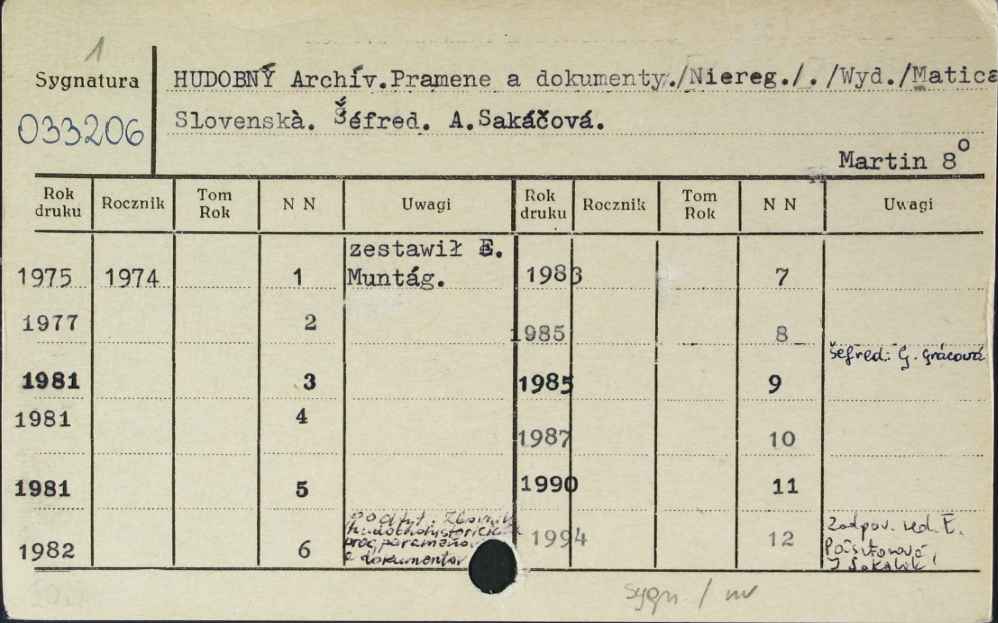 1
Sygnatura
033206
HUDOBNÝ Archív.Pramene a dokumenty./Niereg./. /Wyd./Matica
Slovenskà. Šéfred. A.Sakáčová.
Martin 8°
Rok druku Rocznik Tom Rok N N Uwagi Rok druku Rocznik Tom Rok N N Uwagi
1975 1974 1 zestawił E. Muntág. 1983 7
1977 2 1985 8
šéfred: G. Grácová
1981 3 1985 9
1981 4 1987 10
1981 5 1990 11
1982 6 1994 12 Zodpov. red. E.
a dokumentov
sygn / nv